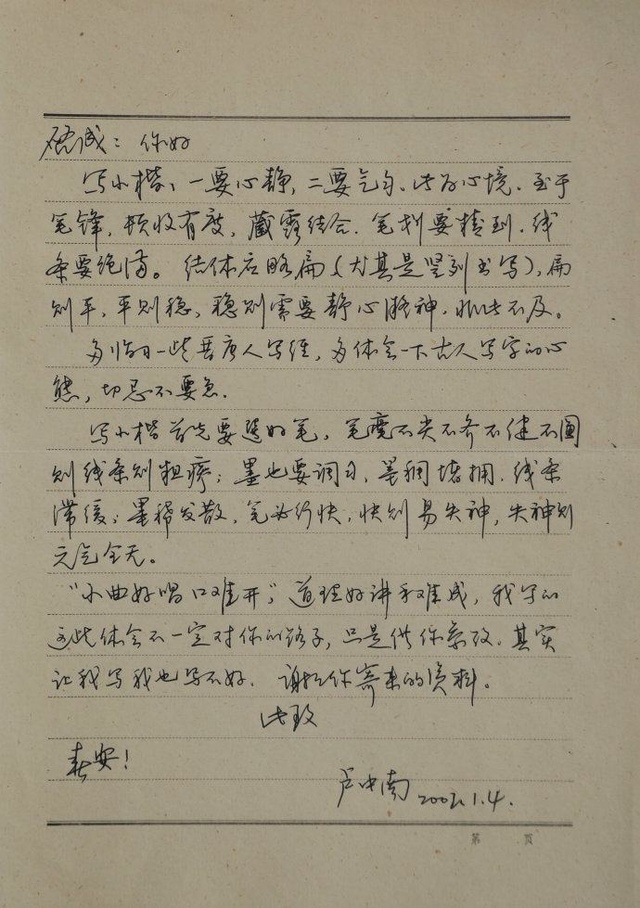 诚：你好
写小楷，一要心静，二要气匀、此为心境．至于
笔锋，顿收有度，藏露结合．笔划要精到．线
条要饱满。结体应略扁（尤其是竖列书写），扁
则平，平则稳，稳则需要静心凝神．非此不及。
多临习一些晋唐人写经，多体会一下古人写字的心
态，切忌不要急．
写小楷首先要选好笔，笔度不尖不齐不健不圆
则线条则粗疏；墨也要调匀，墨稠堵拥．线条
滞缓；墨稀发散，笔必行快，快则易失神，失神则
元气全无。
“小曲好唱口难开”，道理好讲手难成，我写的
这些体会不一定对你的路子，只是供你参改．其实
让我写我也写不好．谢谢你寄来的资料。
此致
春安！
卢中南 2002.1.4.
第 页